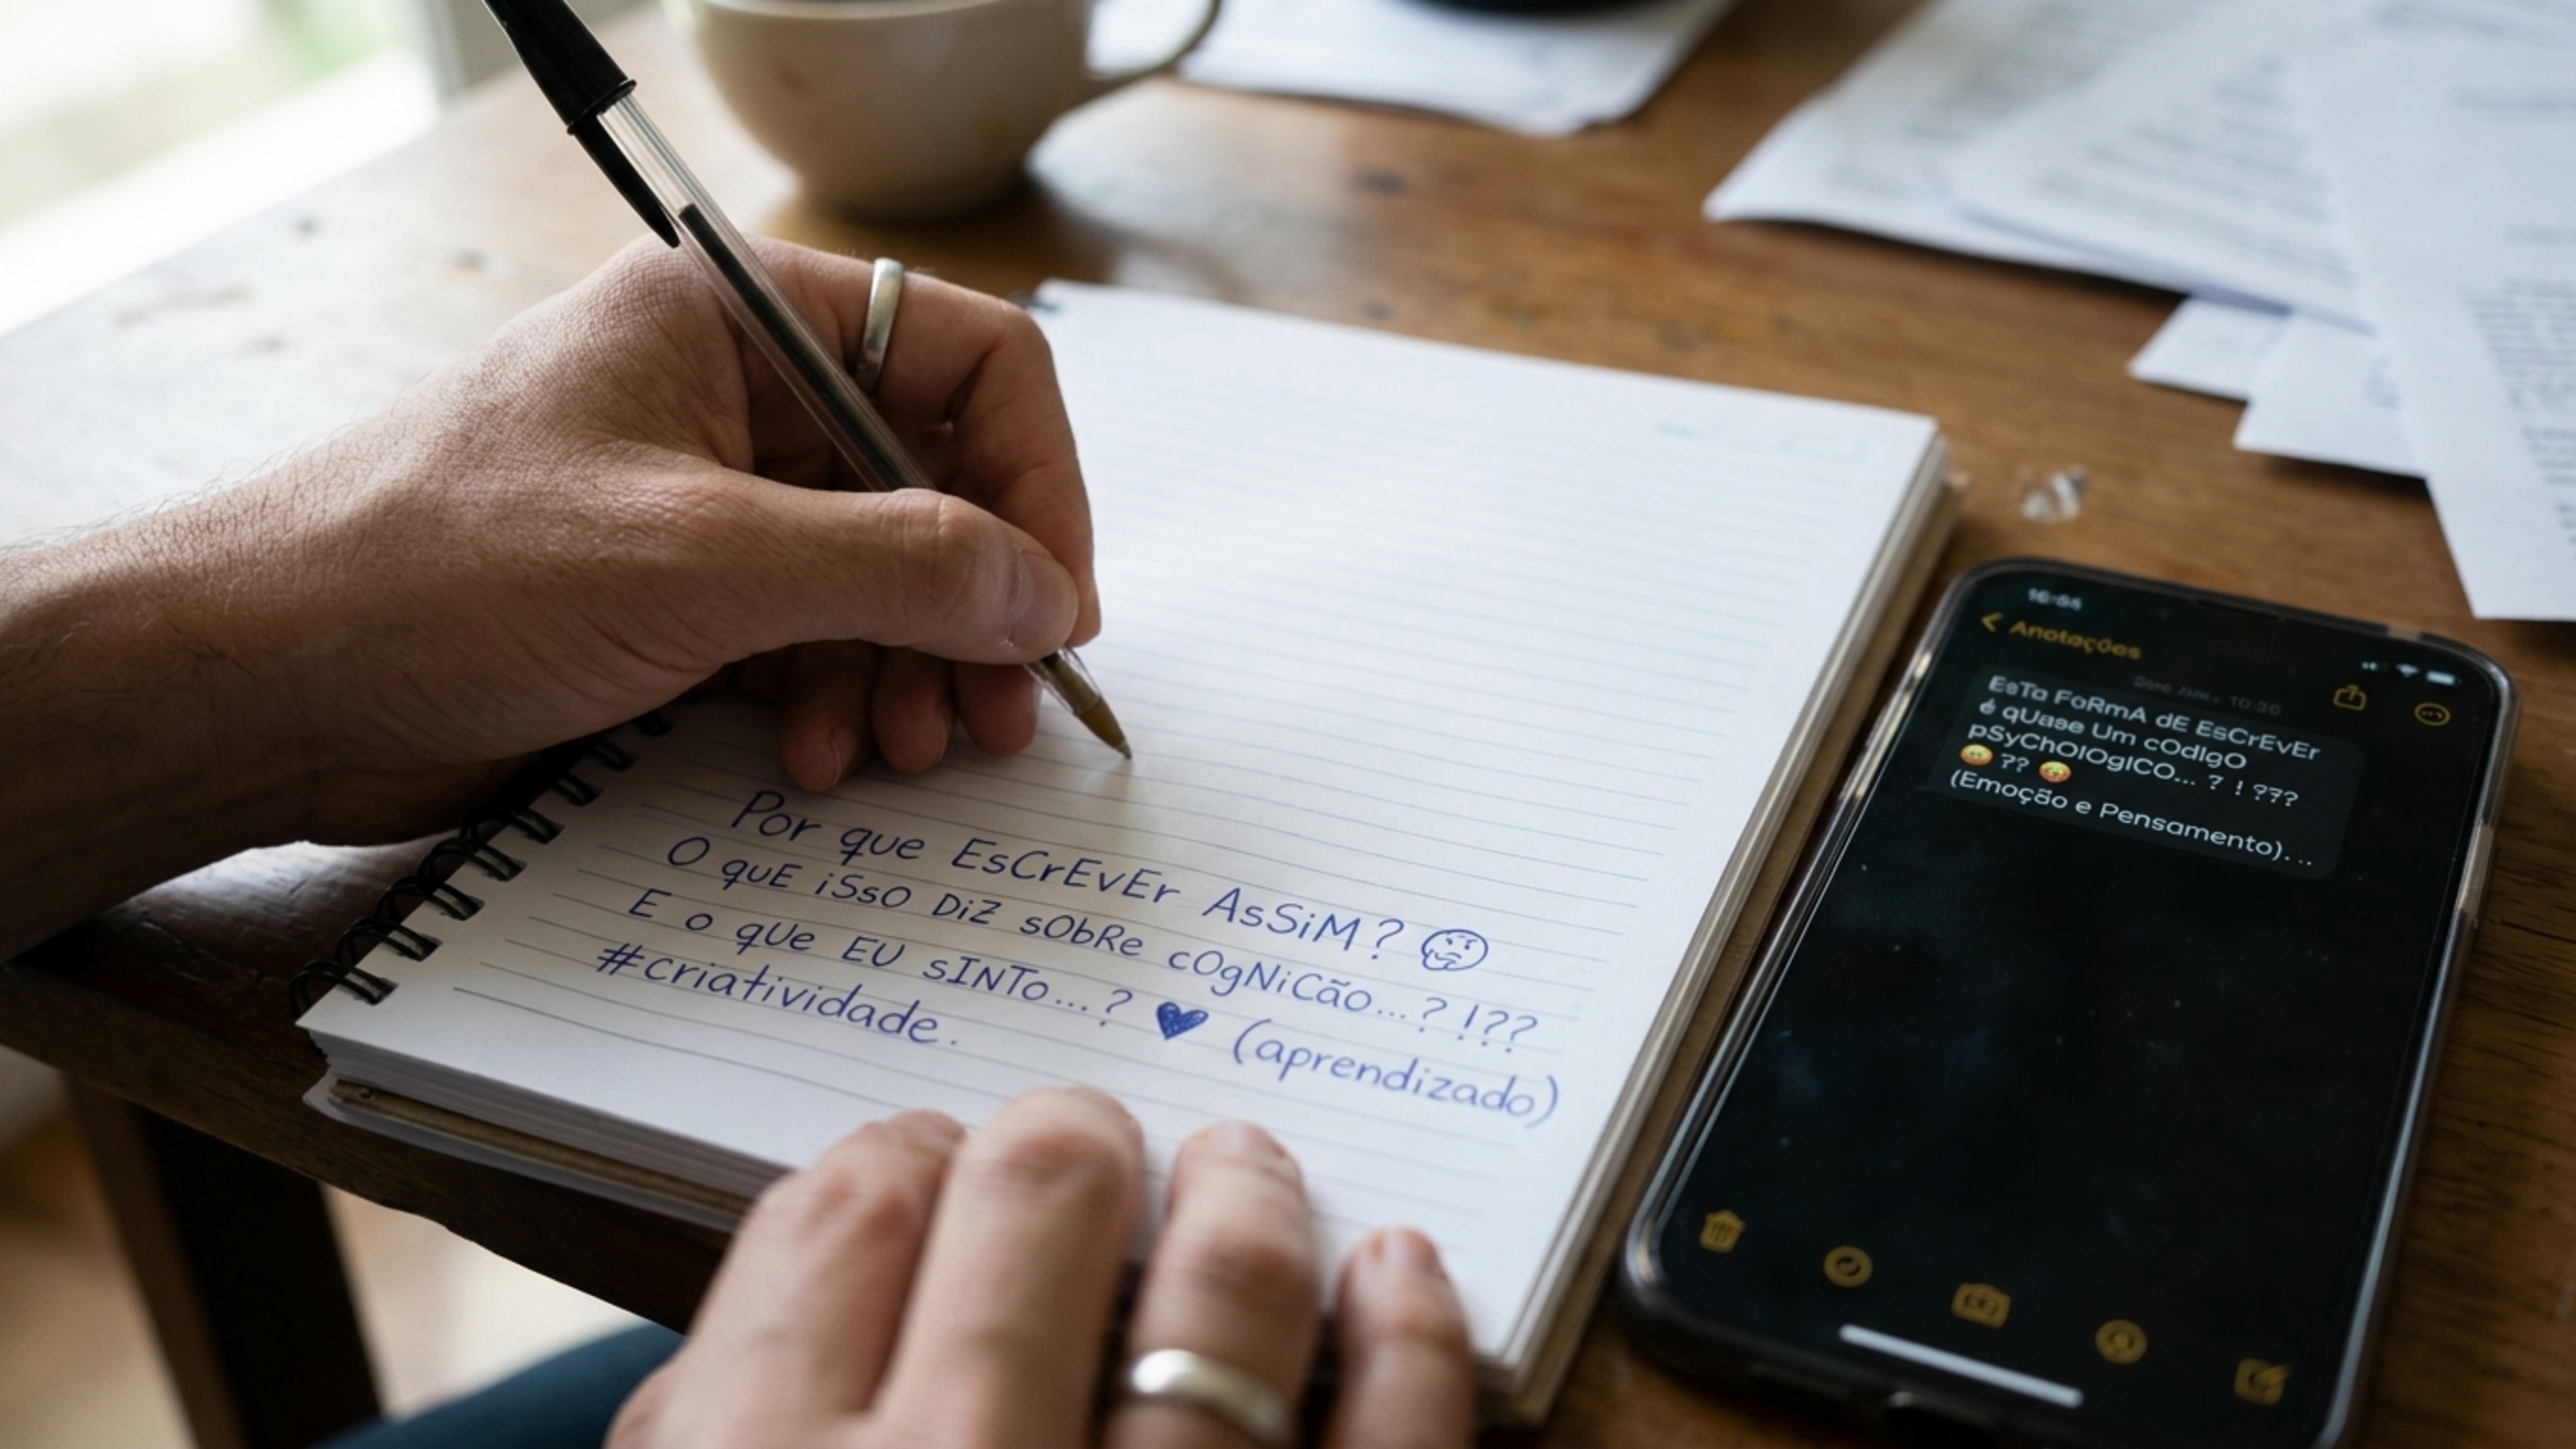 Por que EsCrEvEr AsSiM? 🤔
O quE iSsO DiZ sObRe cOgNiCão...? !??
E o qUe EU sINTo...? ♥ (aprendizado)
#criatividade.
Anotações
EsTa FoRmA dE EsCrEvEr
é qUase Um cOdIgO
pSyChOlOgICO... ? ! ???
?? 
(Emoção e Pensamento)...